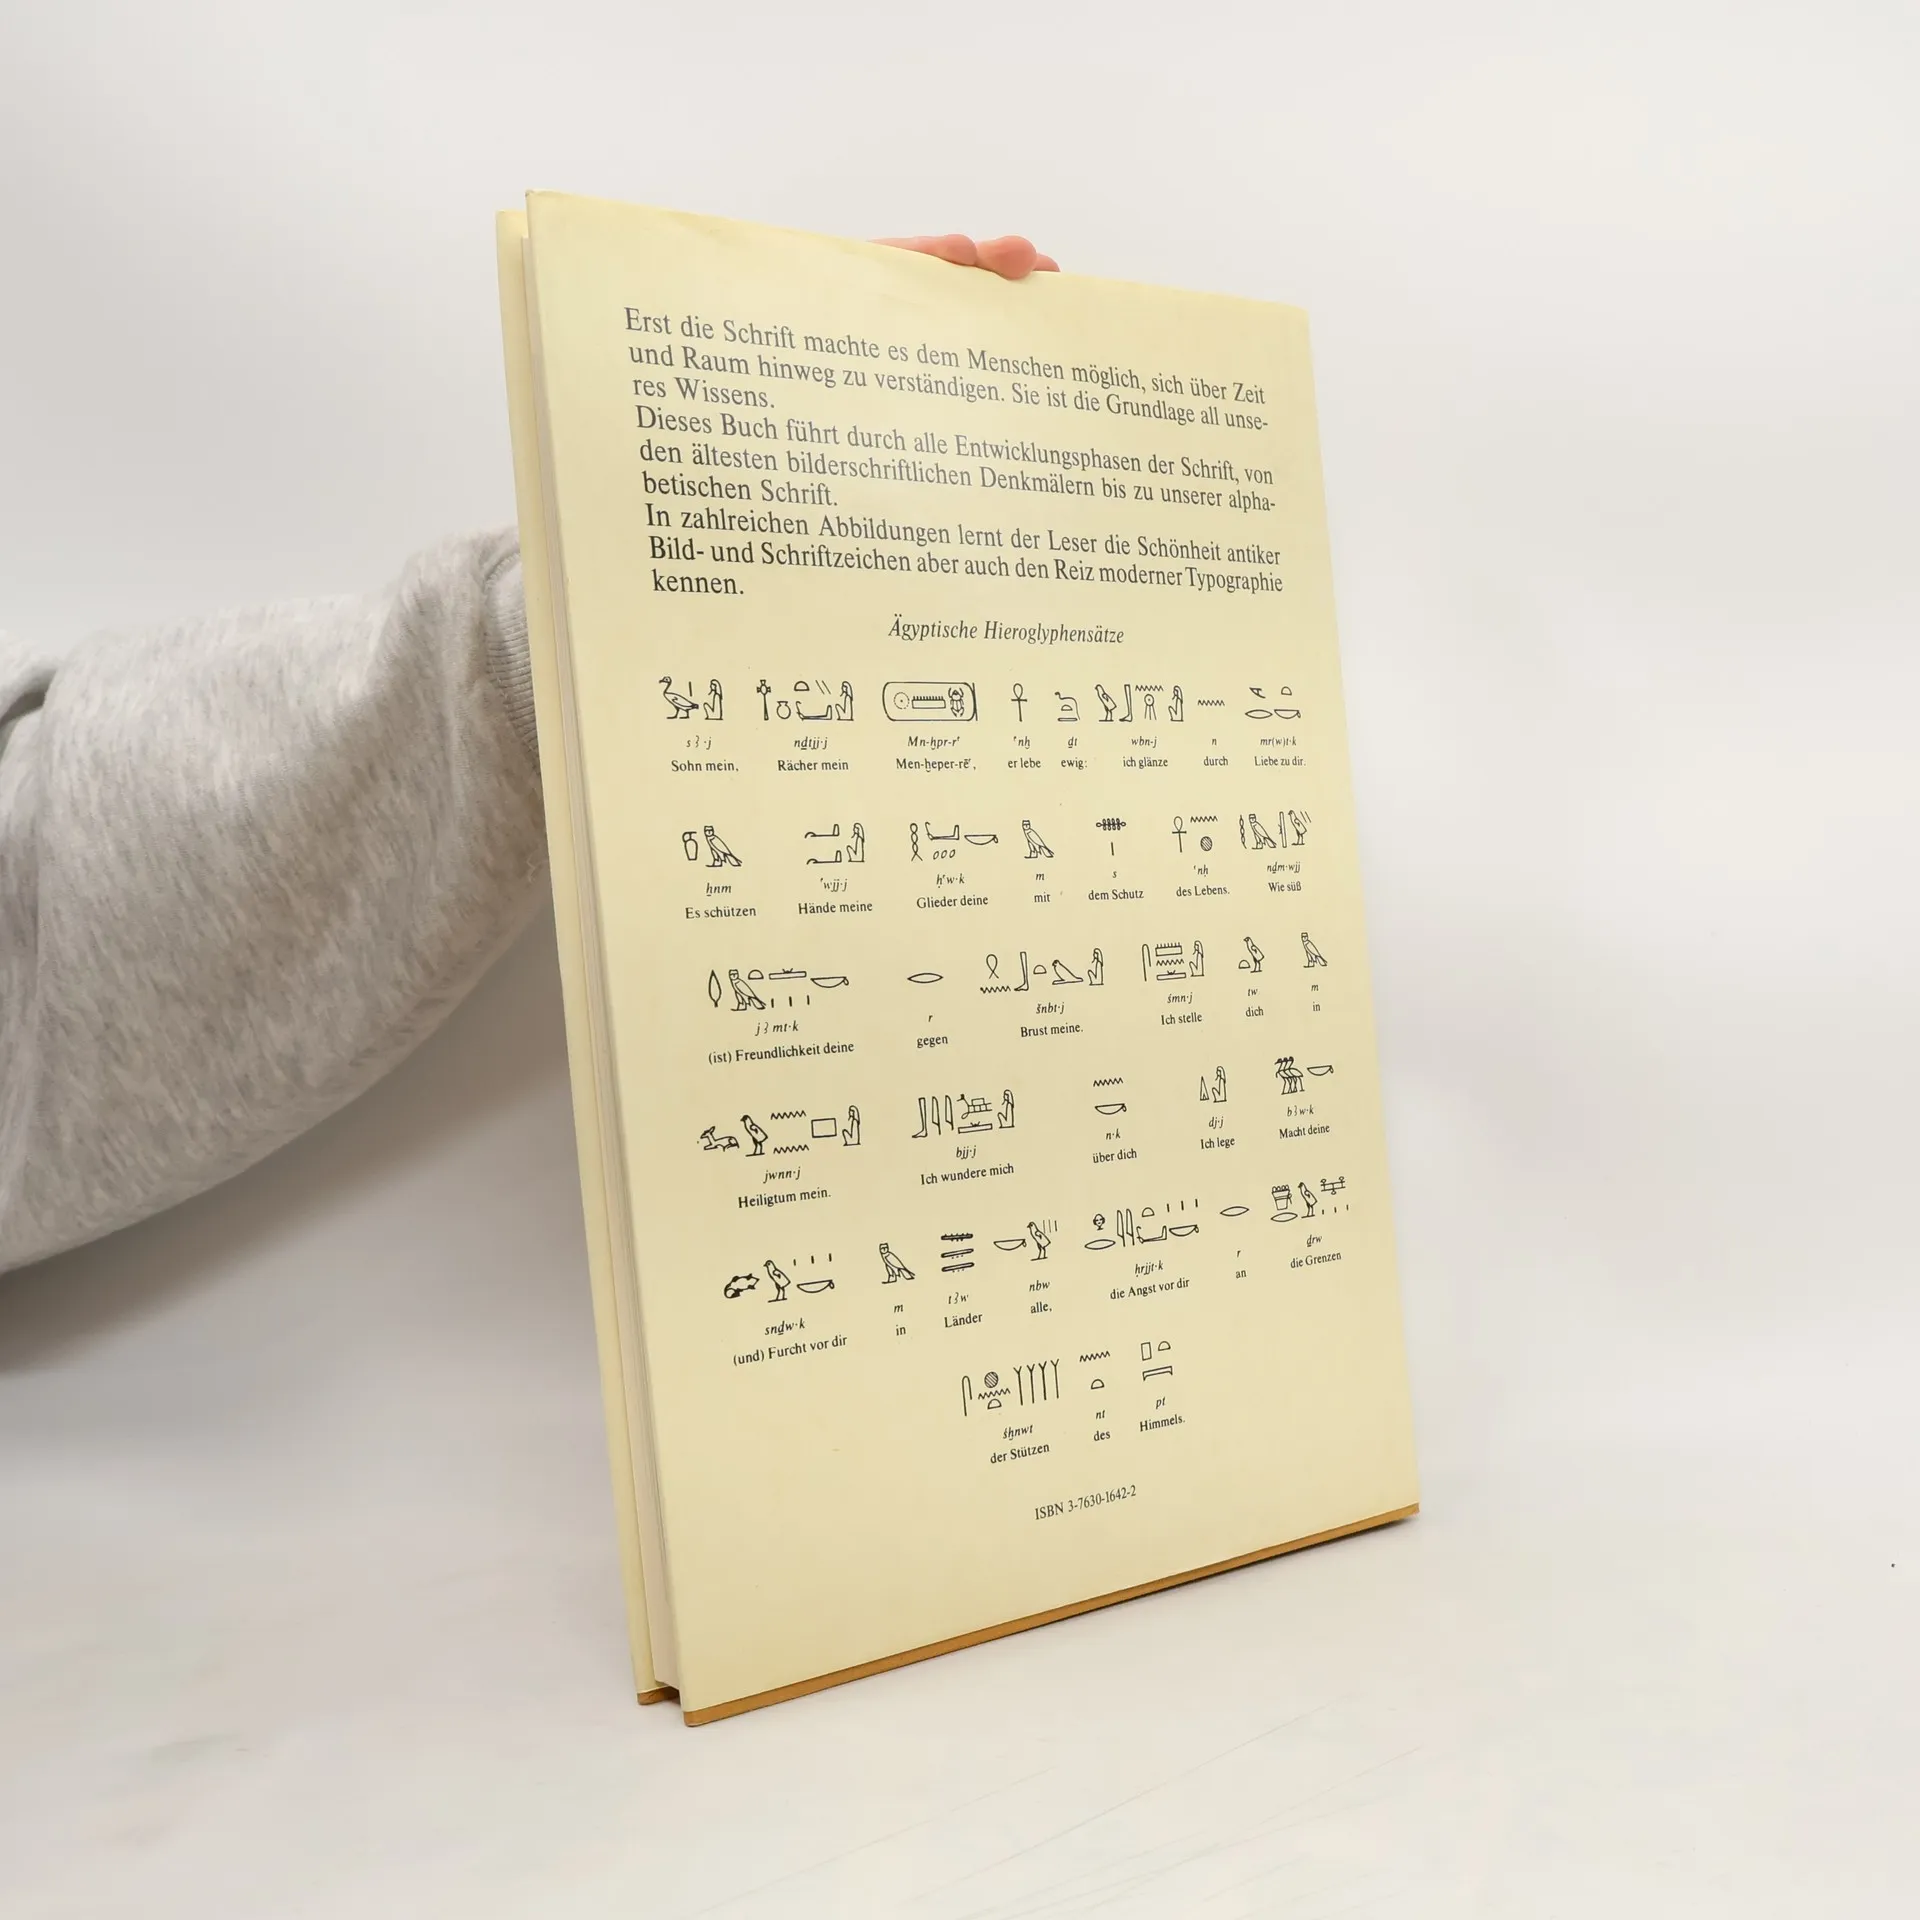 Erst die Schrift machte es dem Menschen möglich, sich über Zeit
und Raum hinweg zu verständigen. Sie ist die Grundlage all unse-
res Wissens.
Dieses Buch führt durch alle Entwicklungsphasen der Schrift, von
den ältesten bilderschriftlichen Denkmälern bis zu unserer alpha-
betischen Schrift.
In zahlreichen Abbildungen lernt der Leser die Schönheit antiker
Bild- und Schriftzeichen aber auch den Reiz moderner Typographie
kennen.
Ägyptische Hieroglyphensätze
sꜣ·j nḏtjj·j Mn-ḫpr-rʿ ʿnḫ ḏt wbn·j n mr(w)t·k
Sohn mein, Rächer mein Men-ḫeper-rēʿ, er lebe ewig: ich glänze durch Liebe zu dir.
ẖnm ʿwjj·j ḥʿw·k m s ʿnḫ nḏm·wjj
Es schützen Hände meine Glieder deine mit dem Schutz des Lebens. Wie süß
jꜣmt·k r šnbt·j śmn·j tw m
(ist) Freundlichkeit deine gegen Brust meine. Ich stelle dich in
jwnn·j bjj·j n·k dj·j bꜣw·k
Heiligtum mein. Ich wundere mich über dich Ich lege Macht deine
snḏw·k m tꜣw nbw ḥrjjt·k r ḏrw
(und) Furcht vor dir in Länder alle, die Angst vor dir an die Grenzen
śḫnwt nt pt
der Stützen des Himmels.
ISBN 3-7630-1642-2